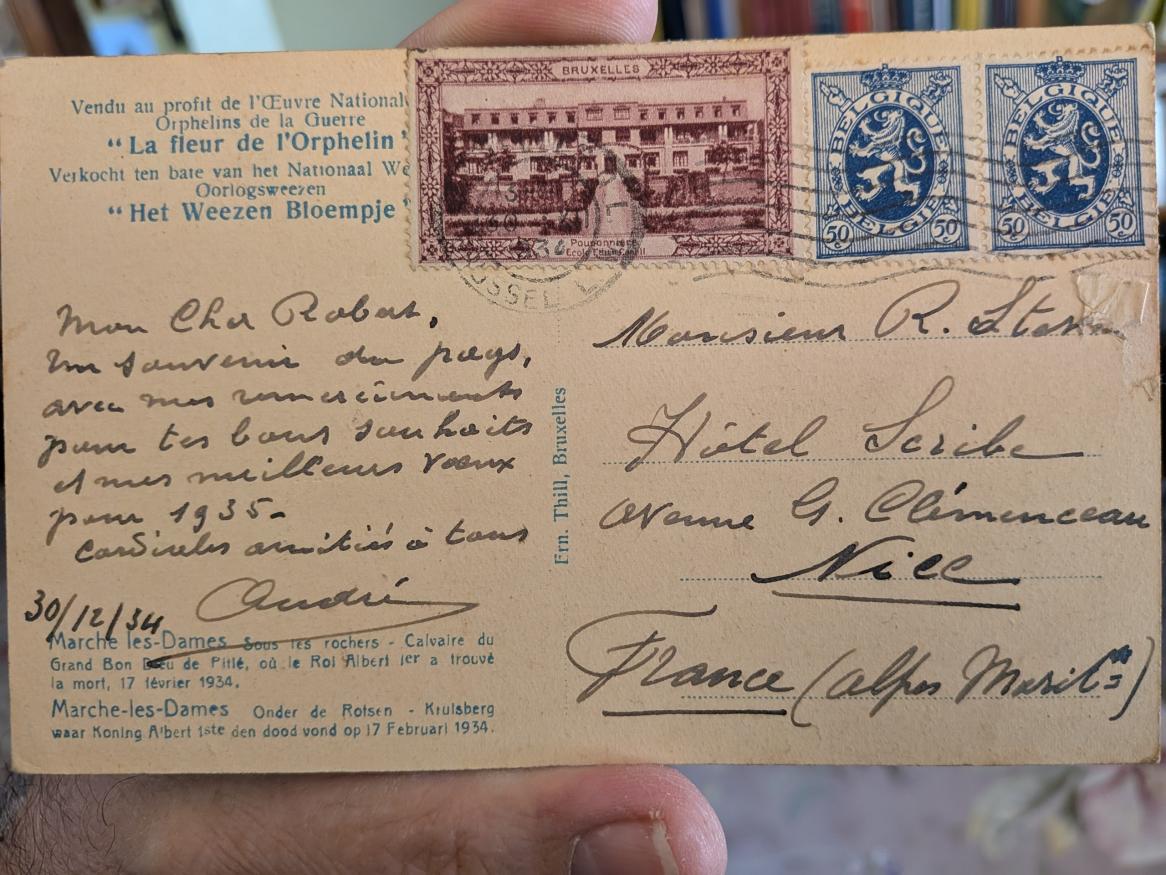 Vendu au profit de l'Œuvre National
Orphelins de la Guerre
"La fleur de l'Orphelin"
Verkocht ten bate van het Nationaal We
Oorlogsweezen
"Het Weezen Bloempje"
BRUXELLES
Pouponnière
Ecole Edith Cavell
BELGIQUE
BELGIE
50c 50c
BELGIQUE
BELGIE
50c 50c
Mon Cher Robert,
un souvenir du pays,
avec mes remerciements
pour tes bons souhaits
et mes meilleurs vœux
pour 1935-
Cordiales amitiés à tous
André
30/12/34
Marche les-Dames Sous les rochers - Calvaire du
Grand Bon Dieu de Pitié, où le Roi Albert Ier a trouvé
la mort, 17 février 1934.
Marche-les-Dames Onder de Rotsen - Kruisberg
waar Koning Albert 1ste den dood vond op 17 Februari 1934.
Ern. Thill, Bruxelles
Monsieur R.
Hôtel Scribe
avenue G. Clémenceau
Nice
France (Alpes Marit.)